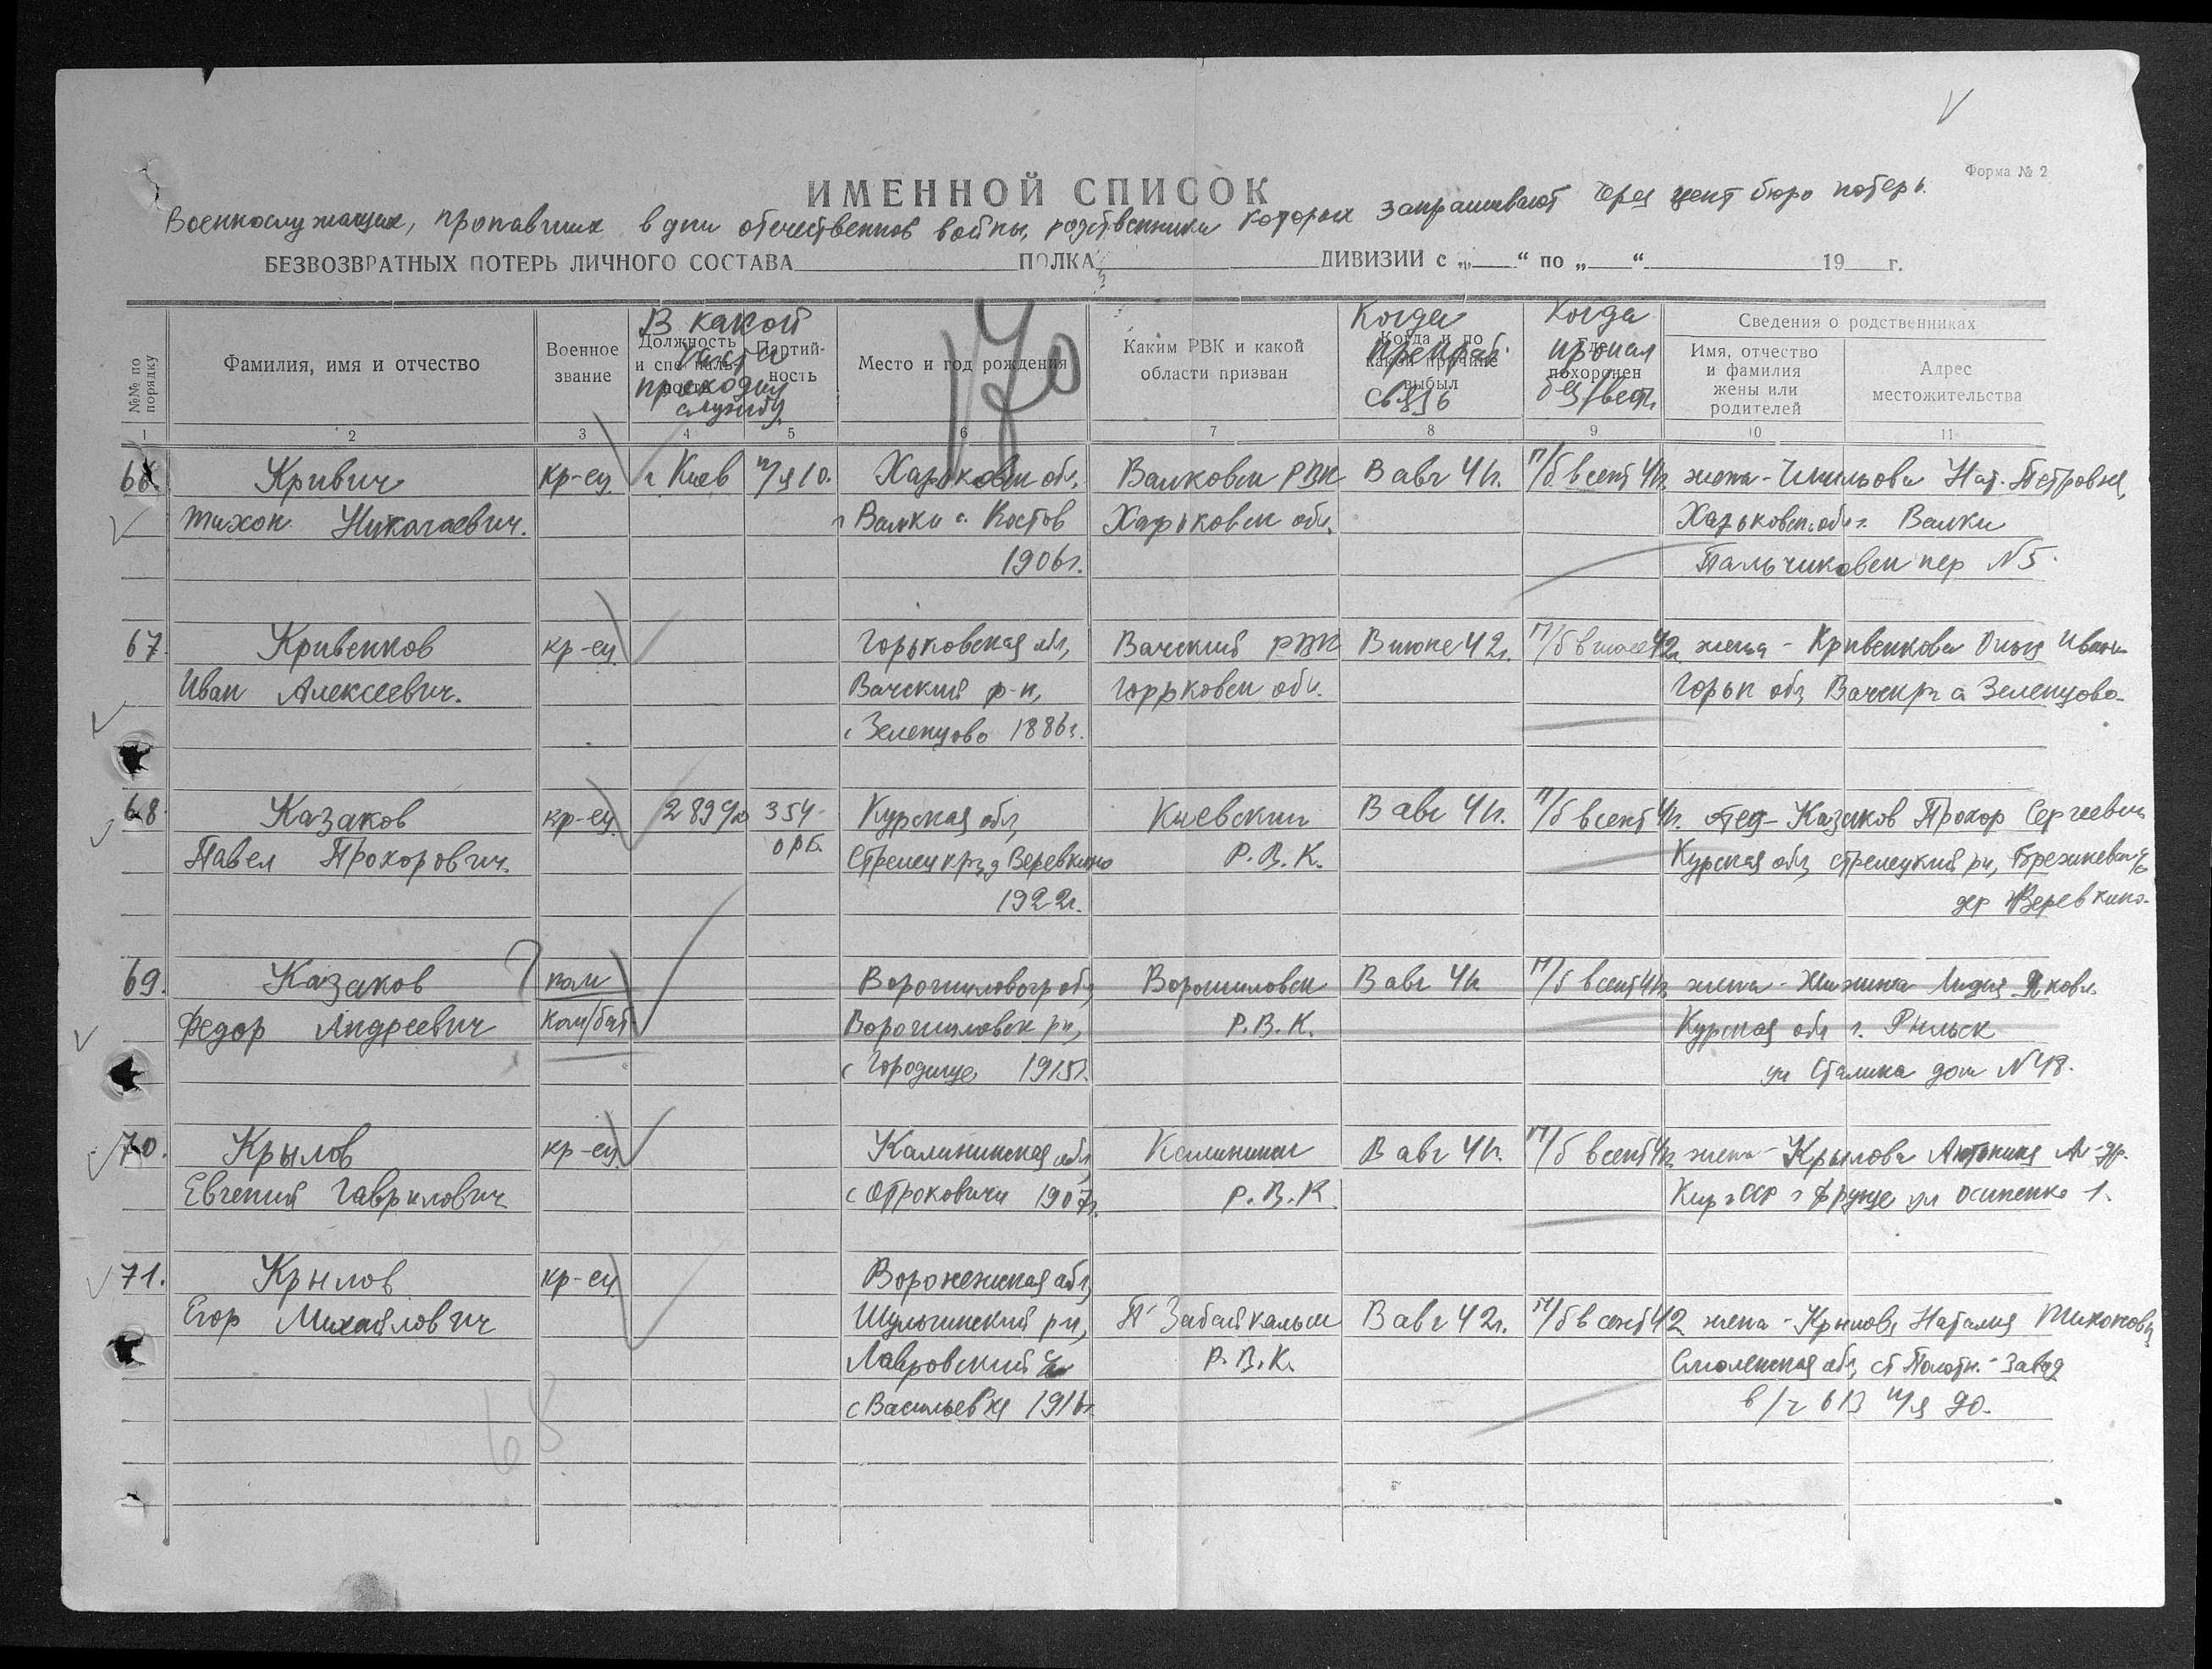 Форма № 2
ИМЕННОЙ СПИСОК
Военнослужащих, пропавших в дни отечественной войны, родственники которых запрашивают через цент бюро потерь.
БЕЗВОЗВРАТНЫХ ПОТЕРЬ ЛИЧНОГО СОСТАВА ПОЛКА ДИВИЗИИ с „ “ по „ “ 19 г.
№№ по порядку
Фамилия, имя и отчество
Военное звание
Должность и специальность
В какой части проходил службу
Партийность
Место и год рождения
170
Каким РВК и какой области призван
Когда и по какой причине выбыл
Когда прекрат. связь
Где похоронен
Когда пропал без/вест.
Сведения о родственниках
Имя, отчество и фамилия жены или родителей
Адрес местожительства
1 2 3 4 5 6 7 8 9 10 11
66. Кривич кр-ец г Киев п/я 10. Харьковск обл, Валковск РВК В авг 41г. п/б в сент 41г. жена - Нат. Петровна,
Тихон Николаевич. г Валки с. Костов Харьковск обл. Харьковск. обл г. Валки
1906г. Пальчиковск пер N5.
67. Кривенков кр-ец Горьковская обл, Вачский РВК В июне 42г. п/б в июле 42г. жена - Кривенкова Ольга Иван
Иван Алексеевич. Вачский р-н, Горьковск обл. Горьк обл Вачск рн с Зеленцово.
с Зеленцово 1886г.
68. Казаков кр-ец 289 354 Курская обл, Киевский В авг 41г. п/б в сент 41г. отец - Казаков Прохор Сергеевич
Павел Прохорович. ОРБ. Стрелецк рн, д Веревкино Р.В.К. Курская обл, стрелецкий рн,
1922г. дер Веревкино.
69. Казаков пом Ворошиловогр обл, Ворошиловск В авг 41 п/б в сент 41г. жена - Лидия Яковл.
Федор Андреевич Ком/бат Ворошиловск рн, Р.В.К. Курская обл г. Рыльск
с Городище 1915г. ул Сталина дом N48.
70. Крылов кр-ец Калининская обл, Калинин В авг 41г. п/б в сент 41г. жена - Крылова Антонина Ал-др.
Евгений Гаврилович с Отроковичи 1907г. Р.В.К. Кирг ССР г Фрунзе ул Осипенко 1.
71. Крылов кр-ец Воронежская обл,
Егор Михайлович Шульгинский рн, П-Забайкальск В авг 42г. п/б в сент 42 жена - Крылова Наталия Тихоновна
Лавровский с/с Р.В.К. Смоленская обл, ст Полотн.-Завод
с Васильевка 1916г. в/ч 613 п/я 90.
68